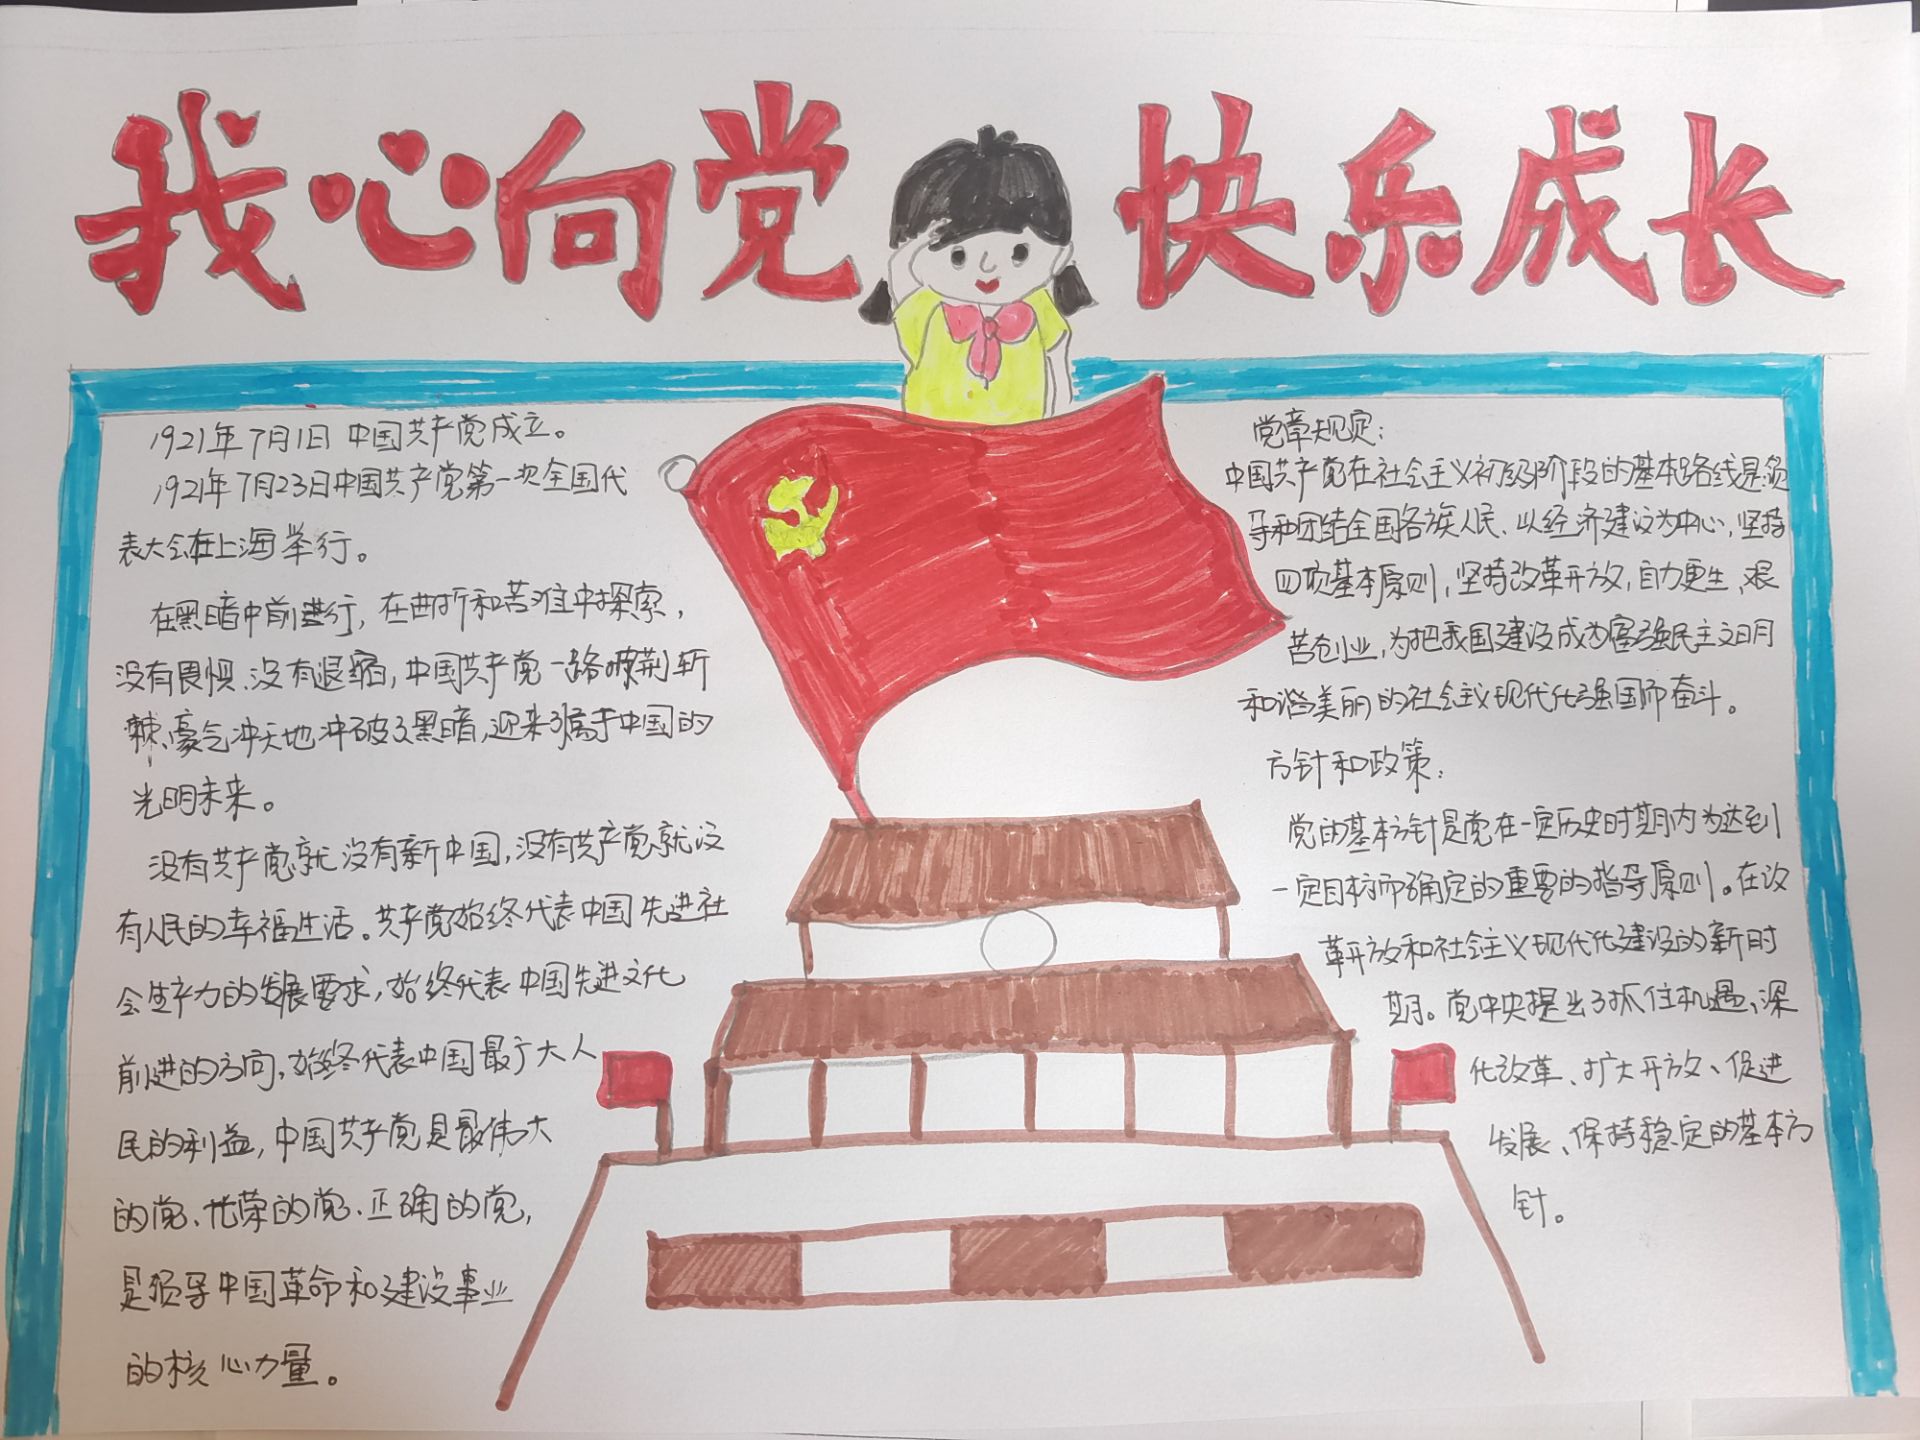 我心向党 快乐成长
1921年7月1日 中国共产党成立。
1921年7月23日中国共产党第一次全国代
表大会在上海举行。
在黑暗中前进行,在曲折和苦难中探索,
没有畏惧、没有退缩,中国共产党一路披荆斩
棘、豪气冲天地冲破了黑暗,迎来了属于中国的
光明未来。
没有共产党就没有新中国,没有共产党就没
有人民的幸福生活。共产党始终代表中国先进社
会生产力的发展要求,始终代表中国先进文化
前进的方向,始终代表中国最广大人
民的利益,中国共产党是最伟大
的党、光荣的党、正确的党,
是领导中国革命和建设事业
的核心力量。
党章规定:
中国共产党在社会主义初级阶段的基本路线是领
导和团结全国各族人民、以经济建设为中心,坚持
四项基本原则,坚持改革开放,自力更生,艰
苦创业,为把我国建设成为富强民主文明
和谐美丽的社会主义现代化强国而奋斗。
方针和政策:
党的基本方针是党在一定历史时期内为达到
一定目标而确定的重要的指导原则。在改
革开放和社会主义现代化建设的新时
期。党中央提出了抓住机遇、深
化改革、扩大开放、促进
发展、保持稳定的基本方
针。